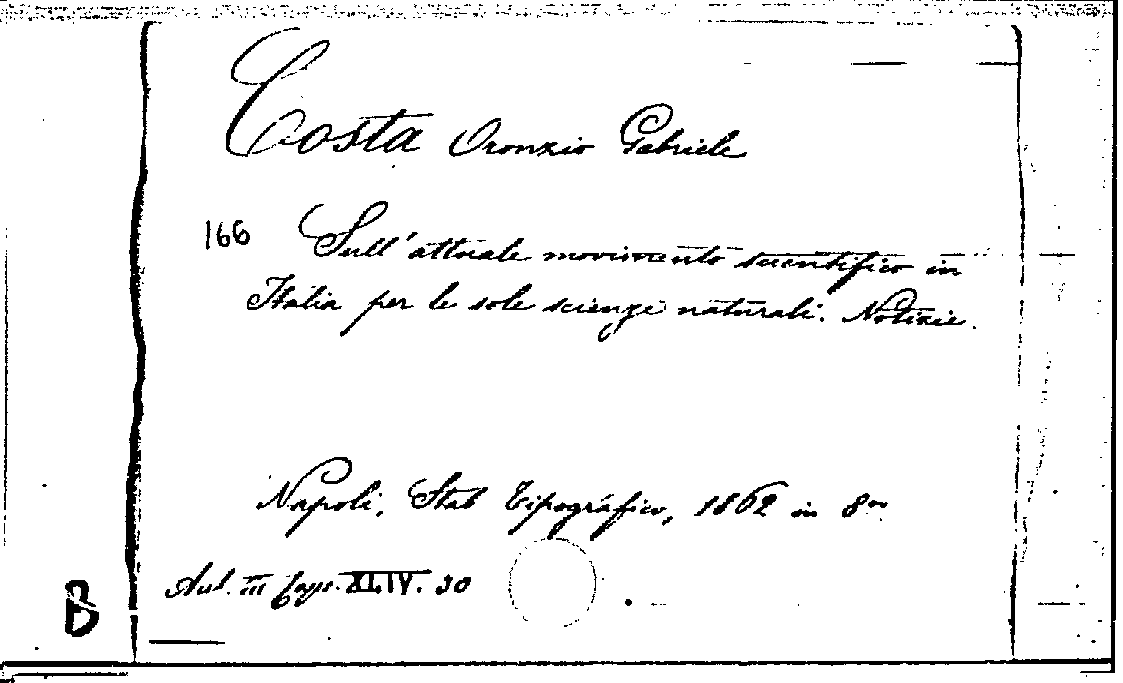 Costa Oronzio Gabriele
166 Sull'attuale movimento scientifico in
Italia per le sole scienze naturali. Notizie.
Napoli, Stab Tipografico, 1862 in 8vo
XLIV. 30
B